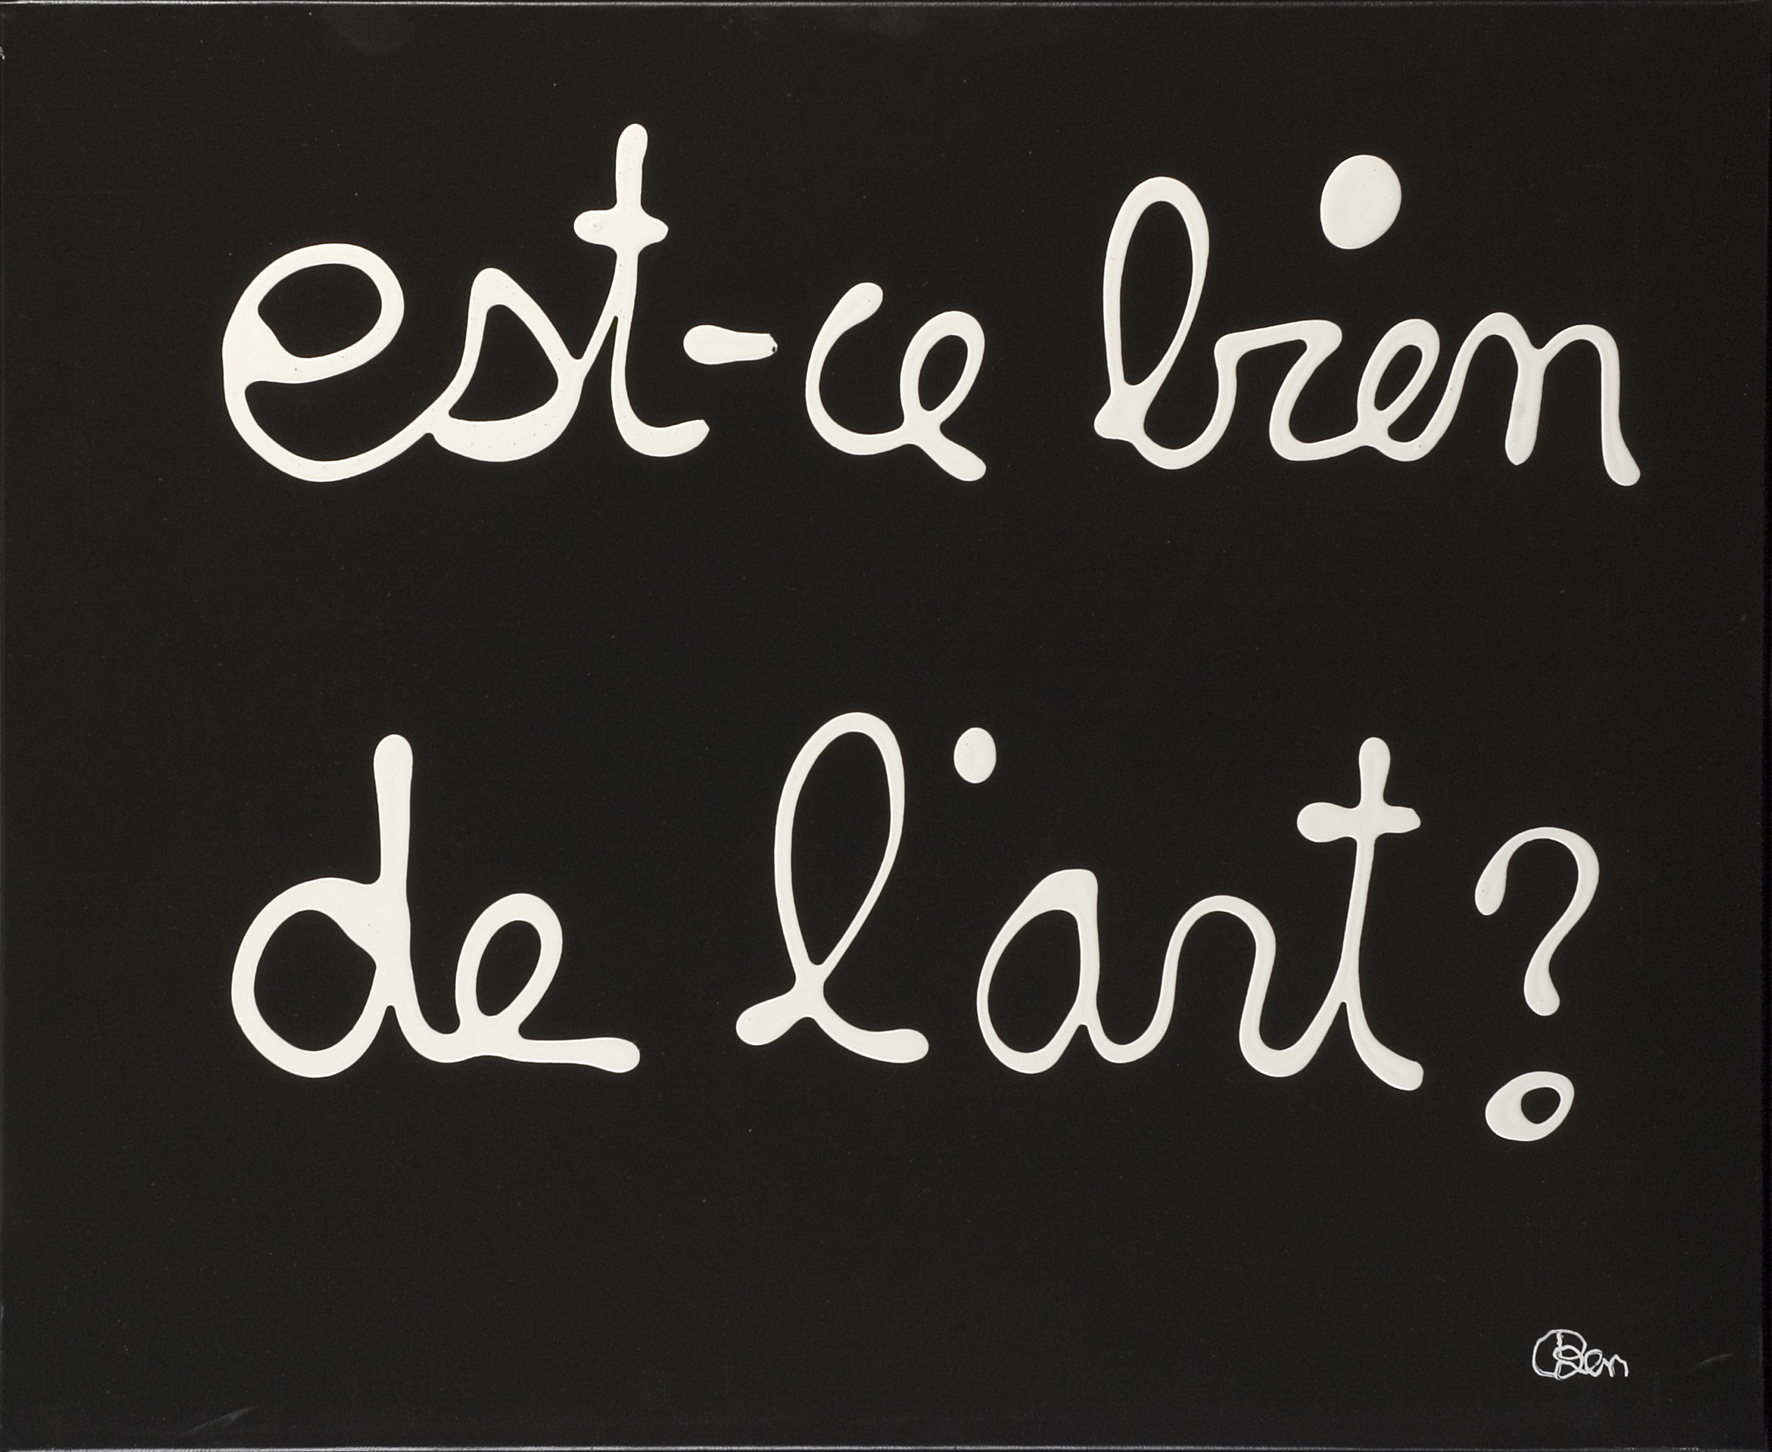 est-ce bien
de l'art?
Ben